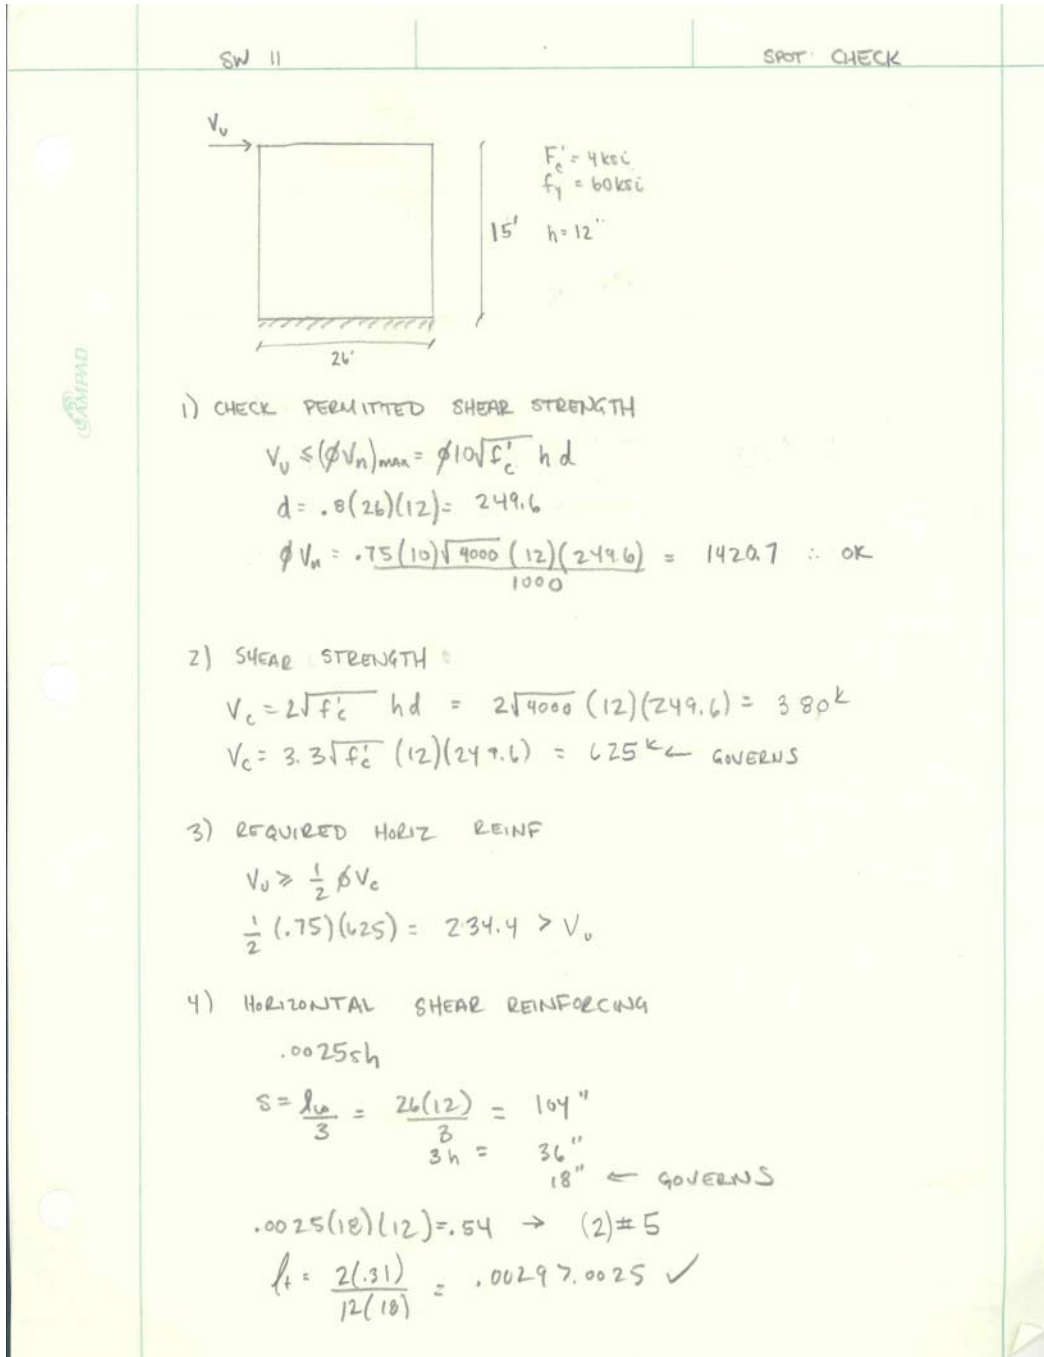 SW 11
SPOT CHECK
Vu
F'c = 4ksi
fy = 60ksi
15' h = 12"
26'
CAMPAD
1) CHECK PERMITTED SHEAR STRENGTH
Vu ≤ (φVn)max = φ10√f'c h d
d = .8(26)(12) = 249.6
φVn = .75(10)√4000 (12)(249.6) / 1000 = 1420.7 ∴ OK
2) SHEAR STRENGTH
Vc = 2√f'c hd = 2√4000 (12)(249.6) = 380k
Vc = 3.3√f'c (12)(249.6) = 625k ← GOVERNS
3) REQUIRED HORIZ REINF
Vu ≥ 1/2 φVc
1/2 (.75)(625) = 234.4 > Vu
4) HORIZONTAL SHEAR REINFORCING
.0025sh
s = lw/3 = 26(12)/3 = 104"
3h = 36"
18" ← GOVERNS
.0025(18)(12) = .54 → (2)#5
ρt = 2(.31) / 12(18) = .0029 > .0025 ✓